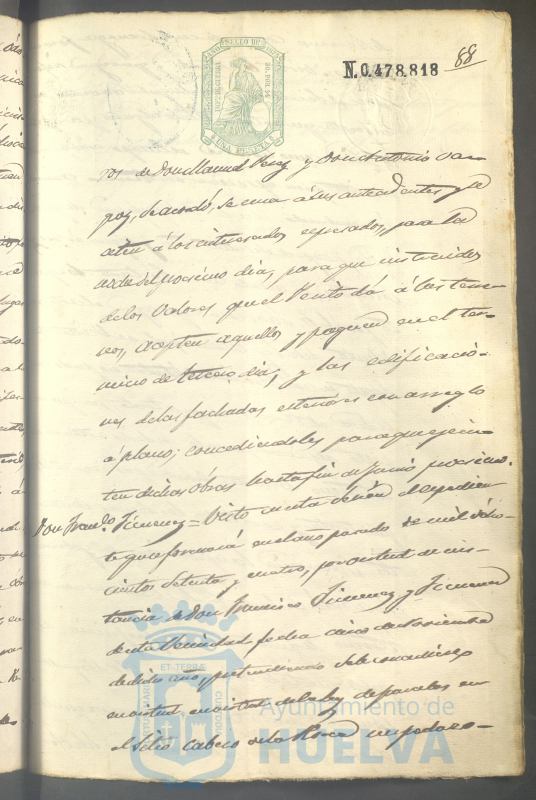 SELLO DE
UNA PESETA
N.0.478.818
88
ros de Don Manuel Perez y Don Antonio Var-
gas, Se acordó, se una á sus antecedentes y se
citen á los interesados espresados, para la
del procsimo dia, para que instruidos
de los valores que el Perito dá á los terre-
nos, acepten aquellos y paguen en el ter-
mino de tercero dia, y las edificacio-
nes de las fachadas esteriores con arreglo
á plano; concediendoles para que ejecu-
ten dichas obras hasta fin de Junio procsimo.
Don Franco. Jimenez = Visto en esta sesion el espedien-
te que se formará en el año pasado de mil ocho-
cientos setenta y cuatro, por virtud de ins-
tancia de Don Francisco Jimenez y Jimenez
de esta Vecindad fecha cinco de Noviembre
de dicho año, pretendiendo se le concediese
en virtud de la ley de parcelas en
el sitio Cabezo de la Horca un pedazo
Ayuntamiento de
HUELVA